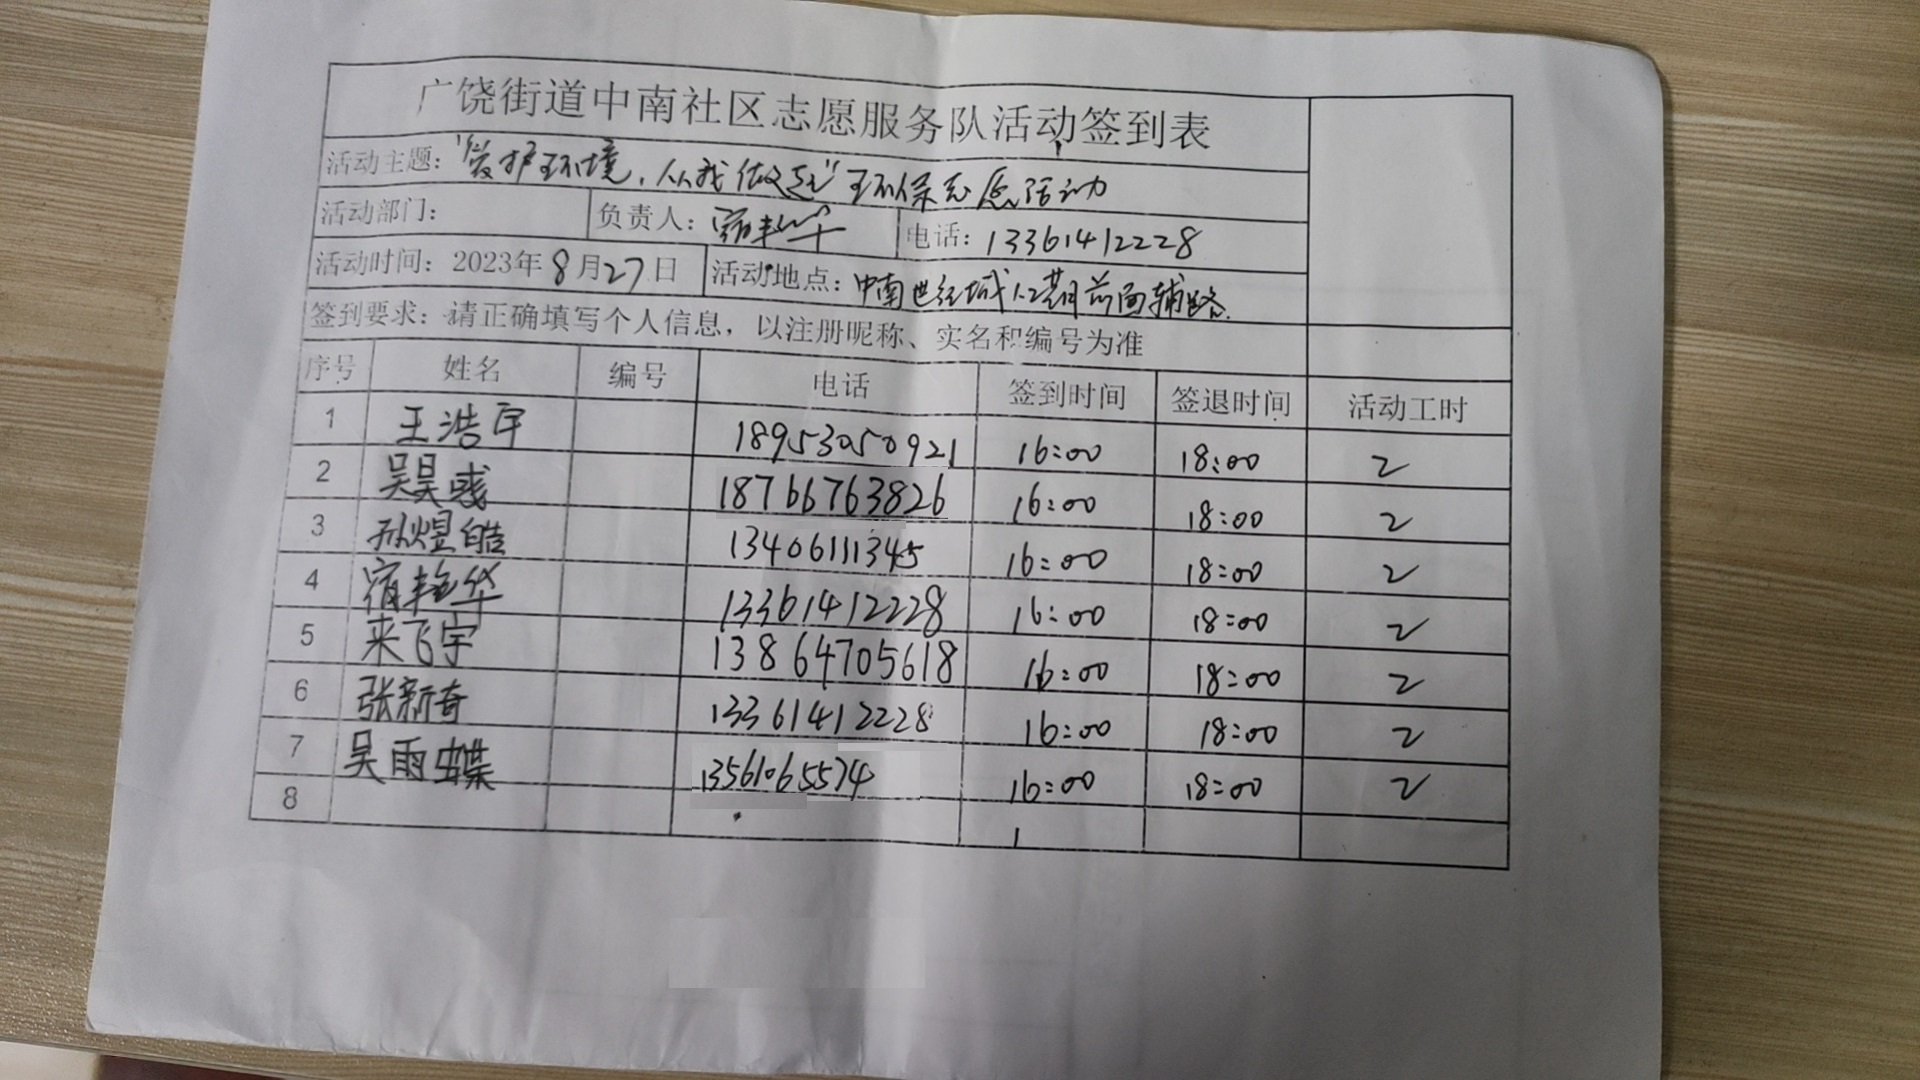 广饶街道中南社区志愿服务队活动签到表
活动主题："爱护环境,从我做起"环保志愿活动
活动部门： 负责人：宿艳华 电话：13361412228
活动时间：2023年8月27日 活动地点：中南世纪城1.2期前面辅路.
签到要求：请正确填写个人信息，以注册昵称、实名和编号为准
序号 姓名 编号 电话 签到时间 签退时间 活动工时
1 王浩宇 18953050921 16:00 18:00 2
2 吴昊彧 18766763826 16:00 18:00 2
3 孙煜皓 13406111345 16:00 18:00 2
4 宿艳华 13361412228 16:00 18:00 2
5 来飞宇 13864705618 16:00 18:00 2
6 张新奇 13361412228 16:00 18:00 2
7 吴雨蝶 13561065574 16:00 18:00 2
8